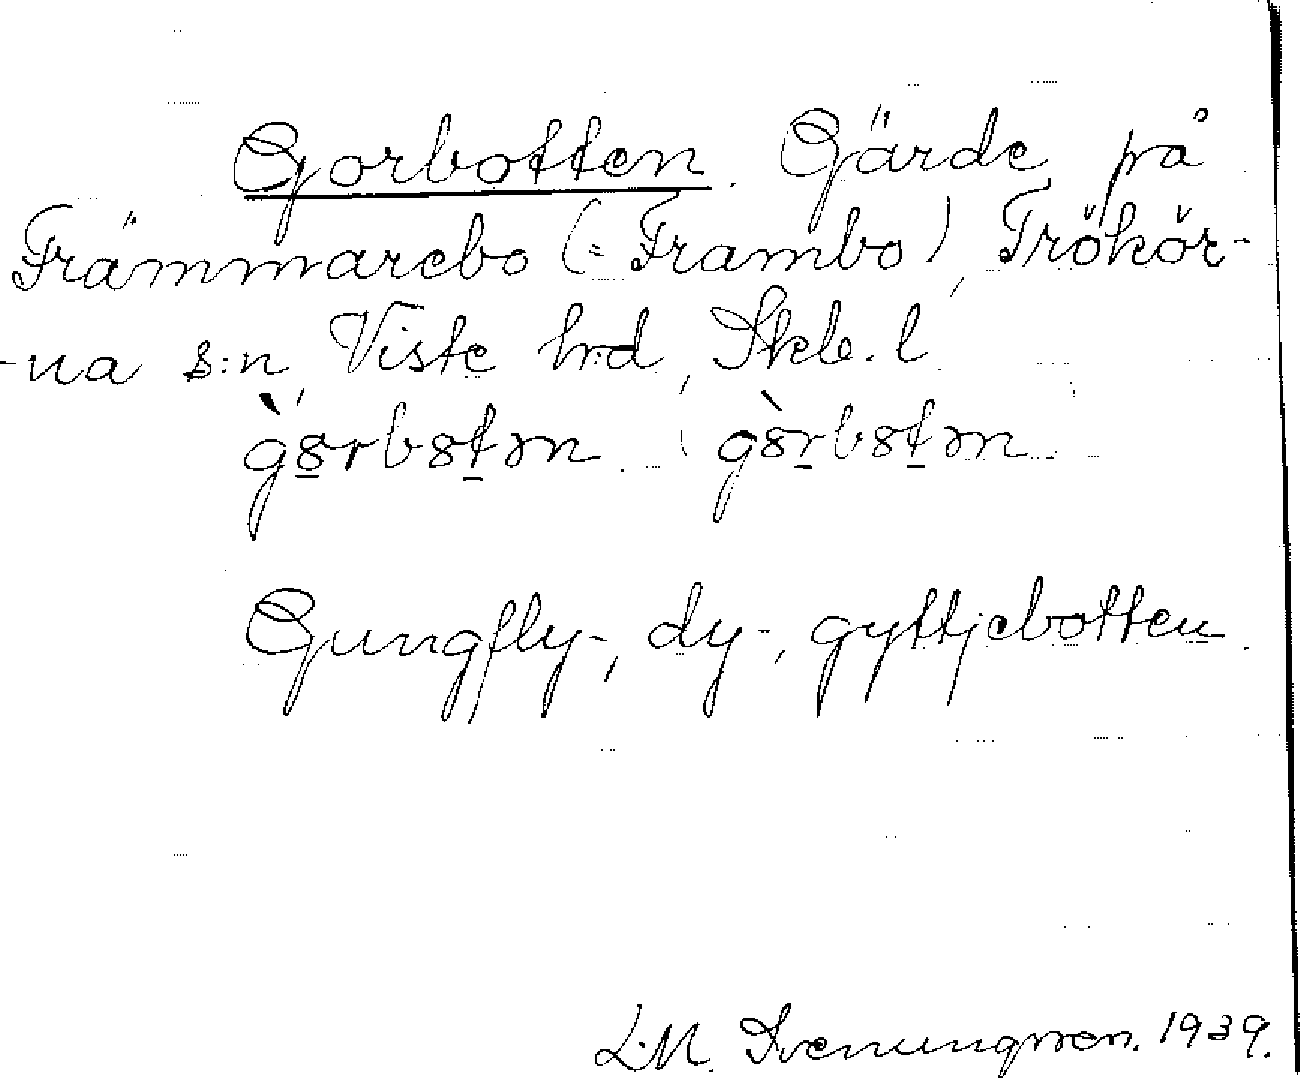 Gorbotten. Gärde på
Främmarebo (= Frambo), Trökör-
-na s:n, Viste hrd, Skb. l.
Gungfly-, dy-, gyttjebotten.
L.M. Svenungsson. 1939.